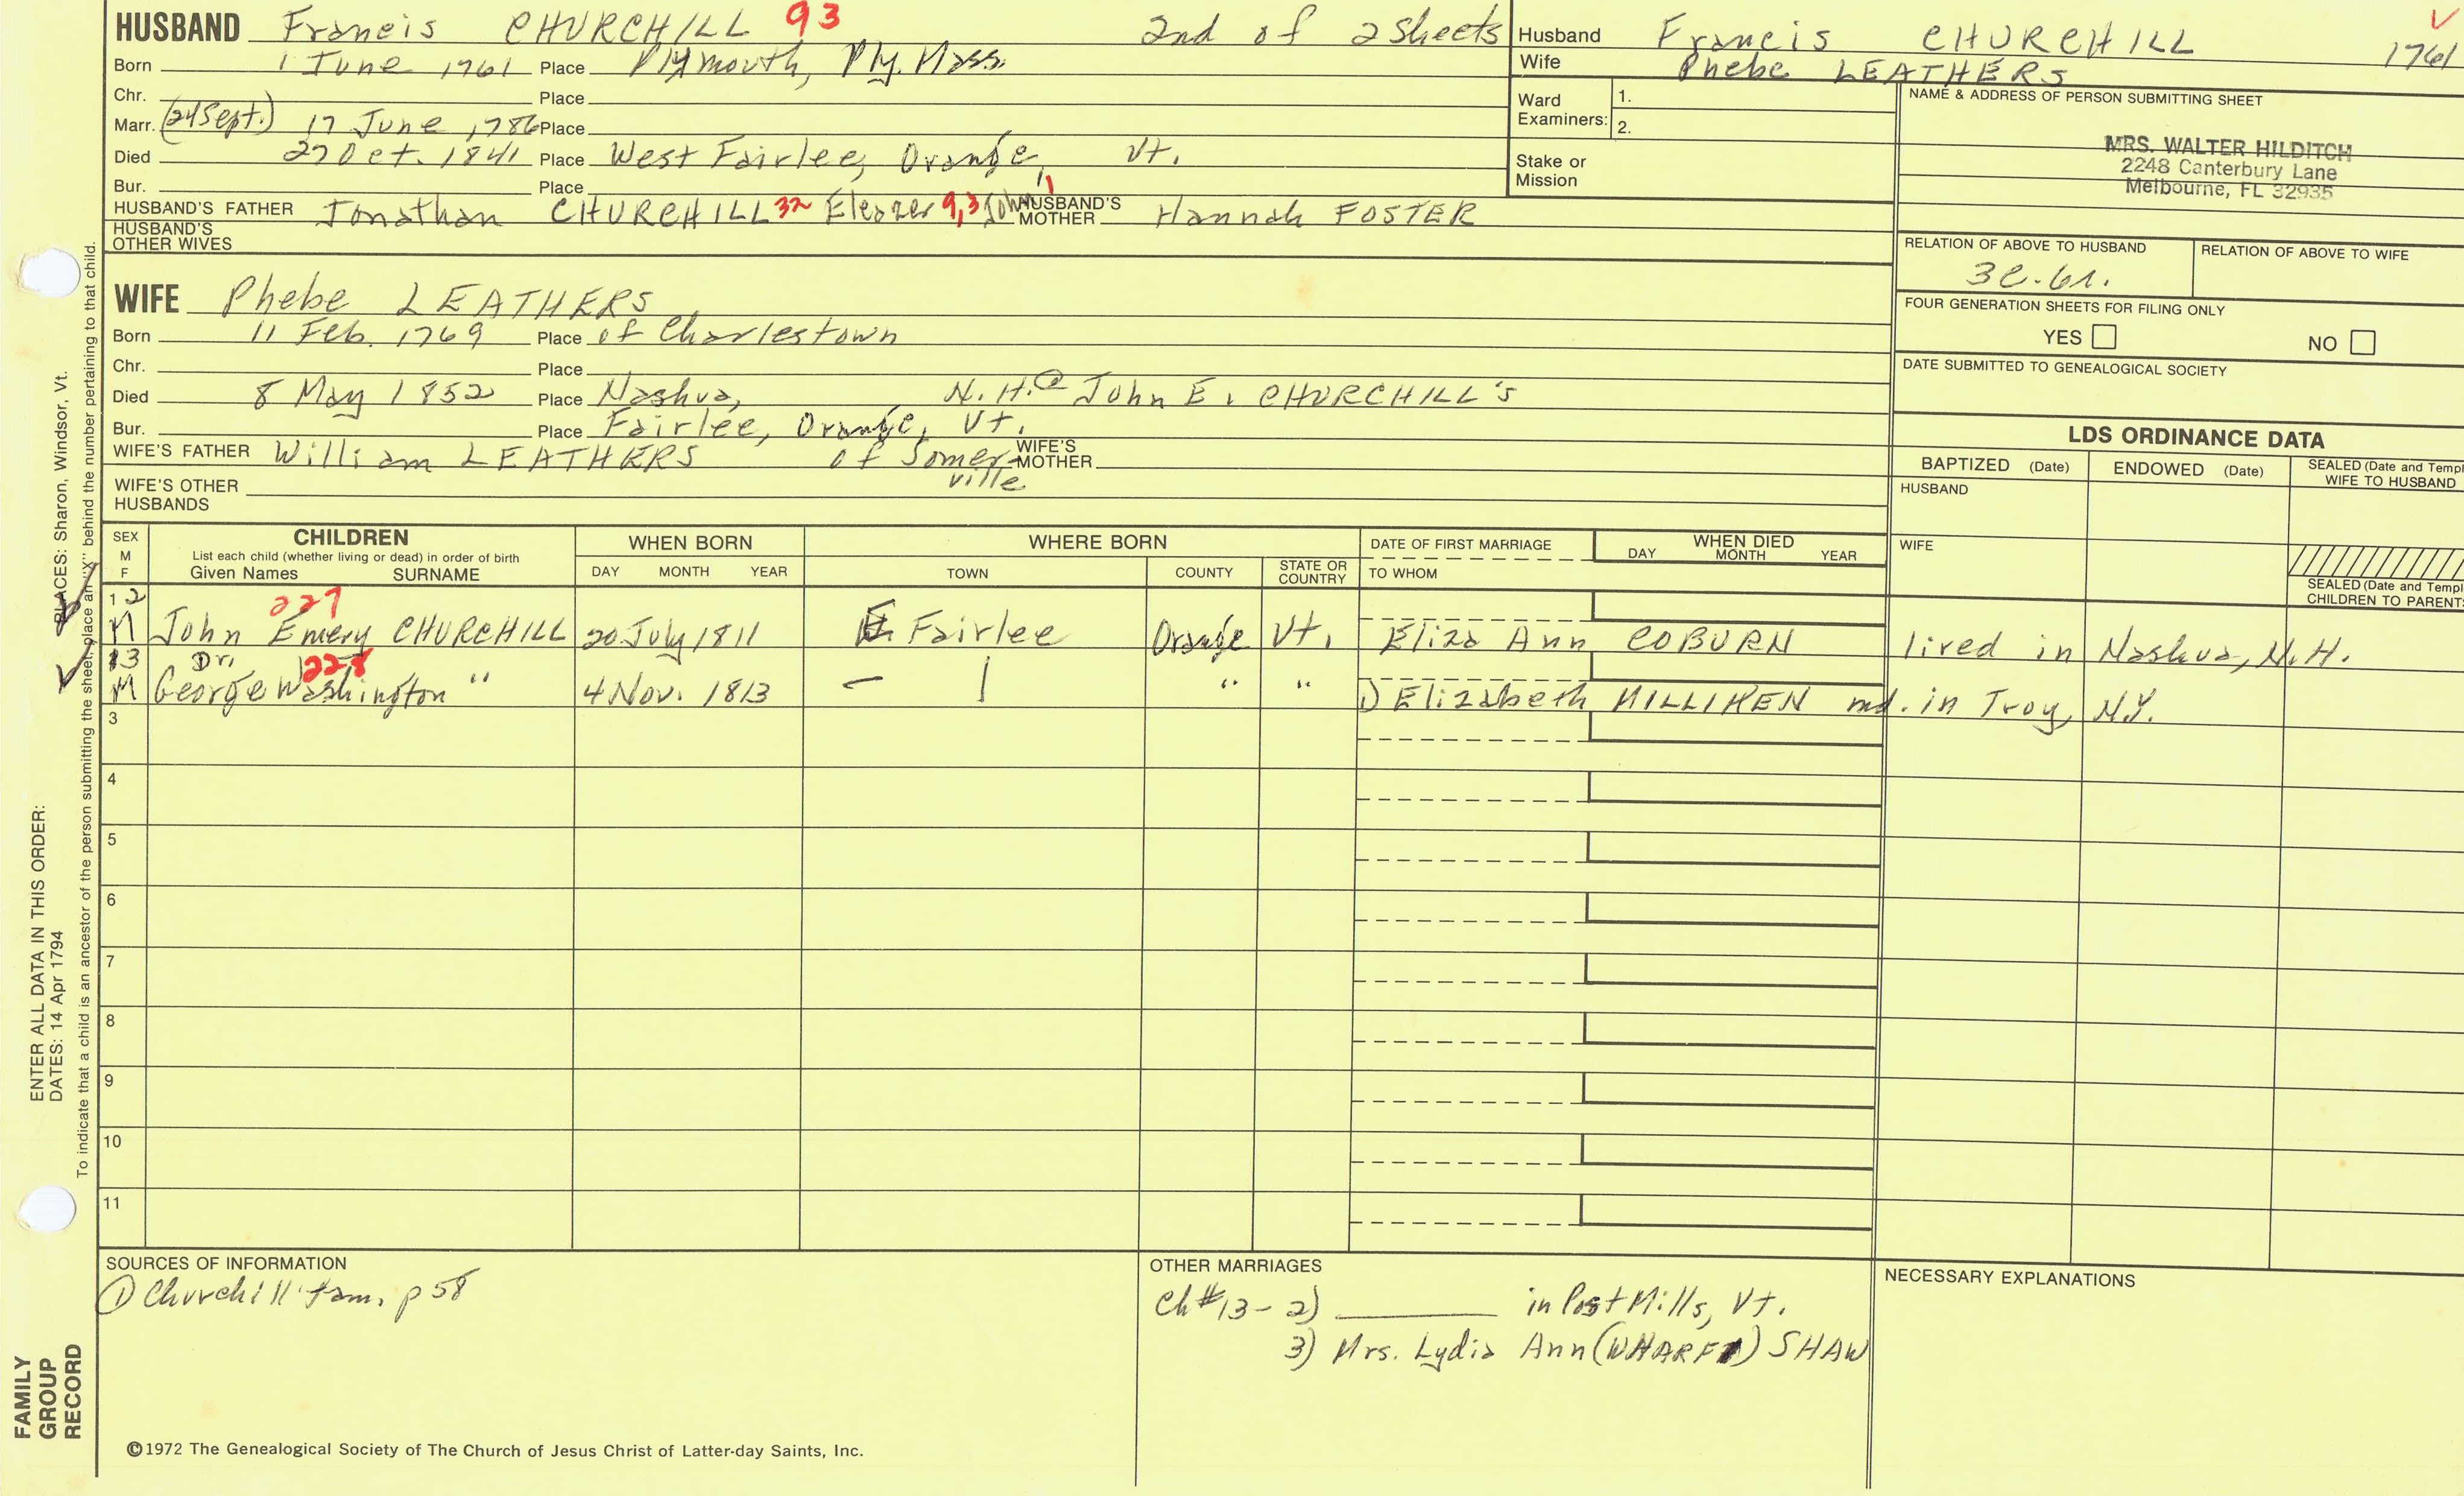 HUSBAND Francis CHURCHILL 93 2nd of 2 Sheets
Born 1 June 1761 Place Plymouth, Ply. Mass.
Chr. Place
Marr. (24 Sept.) 17 June 1786 Place
Died 27 Oct. 1841 Place West Fairlee, Orange, Vt.
Bur. Place
HUSBAND'S FATHER Jonathan CHURCHILL 32 Eleazer 9,3 John 1 HUSBAND'S MOTHER Hannah FOSTER
HUSBAND'S OTHER WIVES
Husband Francis CHURCHILL 1761
Wife Phebe LEATHERS
Ward Examiners: 1.
2.
Stake or Mission
NAME & ADDRESS OF PERSON SUBMITTING SHEET
MRS. WALTER HILDITCH
2248 Canterbury Lane
Melbourne, FL 32935
RELATION OF ABOVE TO HUSBAND RELATION OF ABOVE TO WIFE
FOUR GENERATION SHEETS FOR FILING ONLY
YES NO
DATE SUBMITTED TO GENEALOGICAL SOCIETY
WIFE Phebe LEATHERS
Born 11 Feb. 1769 Place of Charlestown
Chr. Place
Died 8 May 1852 Place Nashua, N.H. @ John E. CHURCHILL'S
Bur. Place Fairlee, Orange, Vt.
WIFE'S FATHER William LEATHERS of Somer-ville WIFE'S MOTHER
WIFE'S OTHER HUSBANDS
LDS ORDINANCE DATA
BAPTIZED (Date) ENDOWED (Date) SEALED (Date and Templ
WIFE TO HUSBAND
HUSBAND
WIFE
SEALED (Date and Templ
CHILDREN TO PARENTS
SEX M F CHILDREN WHEN BORN WHERE BORN DATE OF FIRST MARRIAGE WHEN DIED
List each child (whether living or dead) in order of birth DAY MONTH YEAR
Given Names SURNAME DAY MONTH YEAR TOWN COUNTY STATE OR COUNTRY TO WHOM
12 227
M John Emery CHURCHILL 20 July 1811 Fairlee Orange Vt. Eliza Ann COBURN lived in Nashua, N.H.
13 Dr. 228
M George Washington " 4 Nov. 1813 — | " " 1) Elizabeth MILLIKEN md. in Troy, N.Y.
3
4
5
6
7
8
9
10
11
SOURCES OF INFORMATION
① Churchill fam. p 58
OTHER MARRIAGES
Ch #13 - 2) ________ in Post Mills, Vt.
3) Mrs. Lydia Ann (WHARFF) SHAW
NECESSARY EXPLANATIONS
©1972 The Genealogical Society of The Church of Jesus Christ of Latter-day Saints, Inc.
ENTER ALL DATA IN THIS ORDER:
DATES: 14 Apr 1794 PLACES: Sharon, Windsor, Vt.
To indicate that a child is an ancestor of the person submitting the sheet, place an "X" behind the number pertaining to that child.
FAMILY
GROUP
RECORD